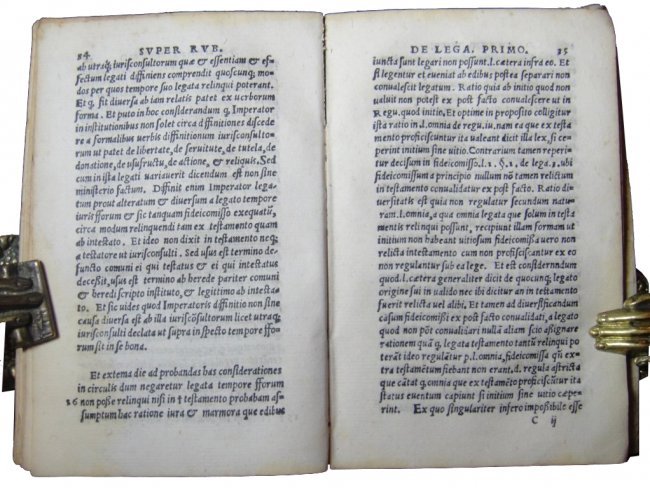 84 SVPER RVB.
ab utraq; iurisconsultorum quæ & essentiam & ef-
fectum legati diffiniens comprendit quoscunq; mo-
dos per quos tempore suo legata relinqui poterant.
Et q. sit diuersa ab iam relatis patet ex uerborum
forma. Et puto in hoc considerandum q. Imperator
in institutionibus non solet circa diffinitiones discede
re a formalibus uerbis diffinitionum iurisconsulto-
rum ut patet de libertate, de seruitute, de tutela, de
donatione, de usufructu, de actione, & reliquis. Sed
cum in ista legati uariauerit dicendum est non sine
ministerio factum. Diffinit enim Imperator lega-
tum prout alteratum & diuersum a legato tempore
iuris fforum & sic tanquam fideicomisso exequatũ,
circa modum relinquendi tam ex testamento quam
ab intestato. Et ideo non dixit in testamento neq;
a testatore ut iurisconsulti. Sed usus est termino de-
functo comuni ei qui testatus & ei qui intestatus
decesit, usus est termino ab herede pariter comuni
& heredi scripto instituto, & legitimo ab intesta-
to. Et sic uides quod Imperatoris diffinitio non sine
causa diuersa est ab illa iuriscõsultorum licet utraq;
iurisconsulti declata ut supra inspecto tempore ffo-
rum sit in se bona.
Et extema die ad probandas has considerationes
in circulis dum negaretur legata tempore fforum
26 non posse relinqui nisi in † testamento probabam as-
sumptum hac ratione iura & marmora que edibus
DE LEGA. PRIMO. 35
iuncta sunt legari non possunt. l. cætera infra eo. Et
si legentur et eueniat ab edibus postea separari non
conualescit legatum. Ratio quia ab initio quod non
ualuit non potest ex post facto conualescere ut in
Regu. quod initio, Et optime in proposito colligitur
ista ratio in l. omnia de regu. iu. nam ea que ex testa
mento proficiscuntur ita ualeant dicit illa lex, si ce-
perint initium sine uitio. Contrarium tamen reperi-
tur decisum in fideicomisso. l. 1. §. 2. de lega. 3. ubi
fideicomissum a principio nullum nõ tamen relictum
in testamento conualidatur ex post facto. Ratio di-
uersitatis est quia non regulatur secundum natu-
ram. l. omnia, a qua omnia legata que solum in testa
mentis relinqui possunt, recipiunt illam formam ut
initium non habeant uitiosum fideicomissa uero non
relicta intestamento cum non proficiscantur ex eo
non regulantur sub ea lege. Et est considerandum
quod. l. cætera generaliter dicit de quocunq; legato
origine sui in ualido nec ibi dicitur an in testamento
fuerit relicta uel alibi. Et tamen ad diuersificandum
casum fideicomissi ex post facto conualidati, a legato
quod non põt conualidari nullã aliam scio assignare
rationem quã q. legata testamento tantũ relinqui po
terãt ideo regulãtur p. l. omnia, fideicomissa qñ ex-
tra testamentum fiebant non erant. d. regula astricta
que cãtat q. omnia que ex testamẽto proficiscũtur ita
status euentum capiunt si initium sine uitio cæpe-
rint. Ex quo singulariter infero impossibile esse
C ij